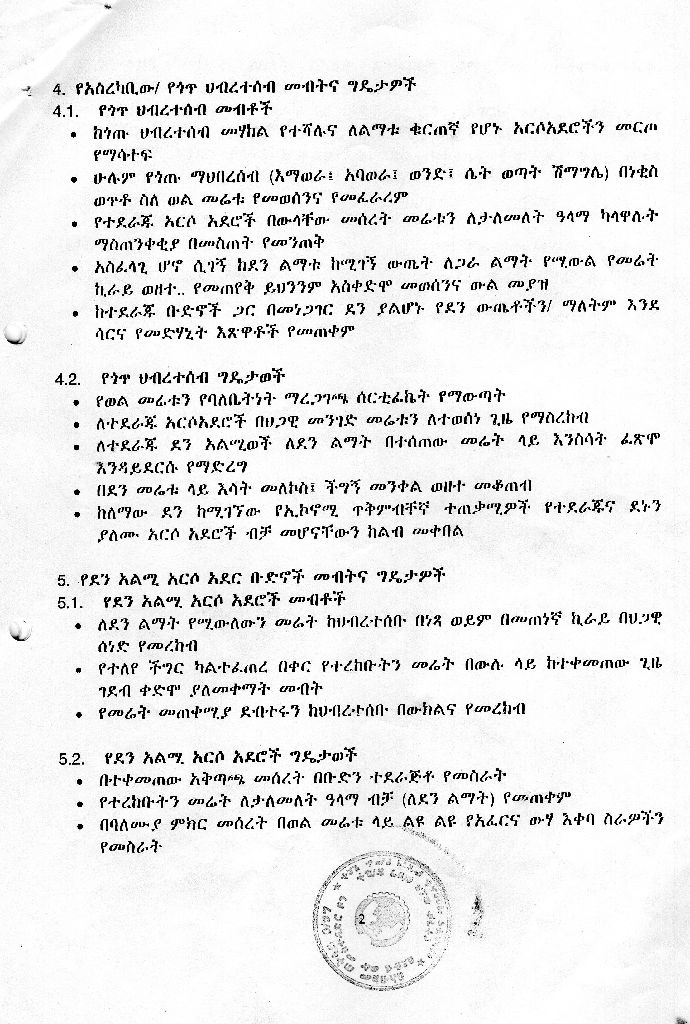 4. የአስረካቢው/ የጎጥ ህብረተሰብ መብትና ግዴታዎች
4.1. የጎጥ ህብረተሰብ መብቶች
• ከጎጡ ህብረተሰብ መሃከል የተሻሉና ለልማቱ ቁርጠኛ የሆኑ አርሶአደሮችን መርጦ
የማሳተፍ
• ሁሉም የጎጡ ማህበረሰብ (እማወራ፤ አባወራ፤ ወንድ፣ ሴት ወጣት ሽማግሌ) በነቂስ
ወጥቶ ስለ ወል መሬቱ የመወሰንና የመፈራረም
• የተደራጁ አርሶ አደሮች በውላቸው መሰረት መሬቱን ለታለመለት ዓላማ ካላዋሉት
ማስጠንቀቂያ በመስጠት የመንጠቅ
• አስፈላጊ ሆኖ ሲገኝ ከደን ልማቱ ከሚገኝ ውጤት ለጋራ ልማት የሚውል የመሬት
ኪራይ ወዘተ.. የመጠየቅ ይህንንም አስቀድሞ መወሰንና ውል መያዝ
• ከተደራጁ ቡድኖች ጋር በመነጋገር ደን ያልሆኑ የደን ውጤቶችን/ ማለትም እንደ
ሳርና የመድሃኒት እጽዋቶች የመጠቀም
4.2. የጎጥ ህብረተሰብ ግዴታወች
• የወል መሬቱን የባለቤትነት ማረጋገጫ ሰርቲፊኬት የማውጣት
• ለተደራጁ አርሶአደሮች በህጋዊ መንገድ መሬቱን ለተወሰነ ጊዜ የማስረከብ
• ለተደራጁ ደን አልሚወች ለደን ልማት በተሰጠው መሬት ላይ እንስሳት ፈጽሞ
እንዳይደርሱ የማድረግ
• በደን መሬቱ ላይ እሳት መለኮስ፤ ችግኝ መንቀል ወዘተ መቆጠብ
• ከለማው ደን ከሚገኘው የኢኮኖሚ ጥቅምብቸኛ ተጠቃሚዎች የተደራጁና ደኑን
ያለሙ አርሶ አደሮች ብቻ መሆናቸውን ከልብ መቀበል
5. የደን አልሚ አርሶ አደር ቡድኖች መብትና ግዴታዎች
5.1. የደን አልሚ አርሶ አደሮች መብቶች
• ለደን ልማት የሚውለውን መሬት ከህብረተሰቡ በነጻ ወይም በመጠነኛ ኪራይ በህጋዊ
ሰነድ የመረከብ
• የተለየ ችግር ካልተፈጠረ በቀር የተረከቡትን መሬት በውሉ ላይ ከተቀመጠው ጊዜ
ገደብ ቀድሞ ያለመቀማት መብት
• የመሬት መጠቀሚያ ደብተሩን ከህብረተሰቡ በውክልና የመረከብ
5.2. የደን አልሚ አርሶ አደሮች ግዴታወች
• በተቀመጠው አቅጣጫ መሰረት በቡድን ተደራጅቶ የመስራት
• የተረከቡትን መሬት ለታለመለት ዓላማ ብቻ (ለደን ልማት) የመጠቀም
• በባለሙያ ምክር መሰረት በወል መሬቱ ላይ ልዩ ልዩ የአፈርና ውሃ እቀባ ስራዎችን
የመስራት
2